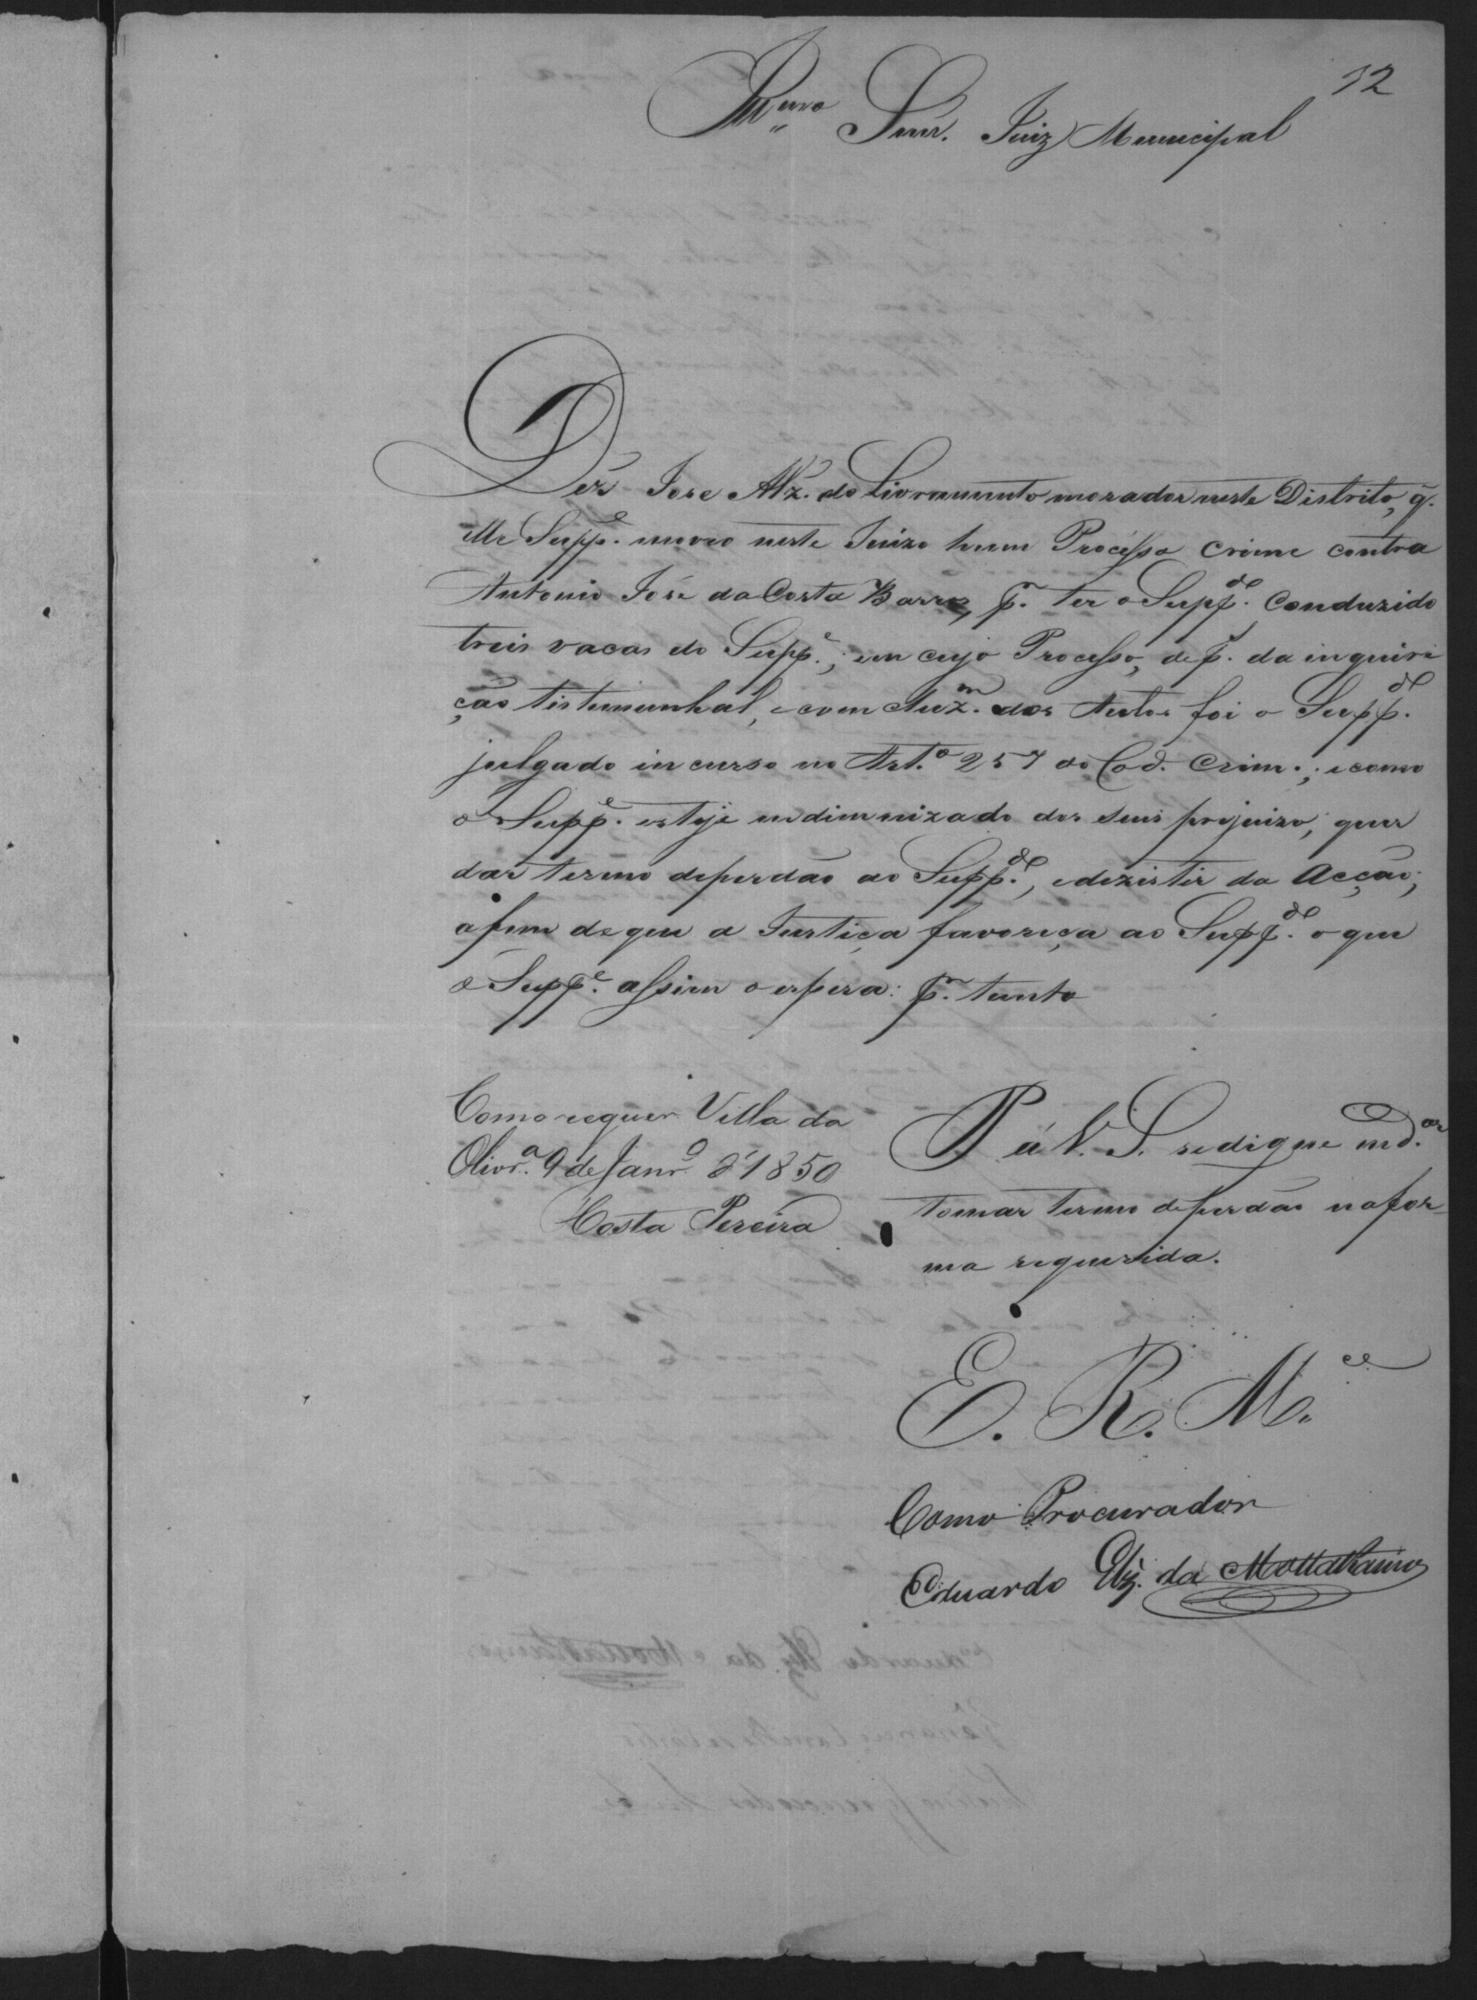 12
Illmo Snr. Juiz Municipal
Diz Jose Alz. do Livramento morador neste Distrito, q.
elle Suppe. moveo neste Juizo hum Processo crime contra
Antonio José da Costa Barros, pr. ter o Suppdo. Conduzido
treis vacas do Suppe.; em cujo Processo, de p. da inquiri
ção tistimunhal, e com Auzm. dos Autos foi o Suppdo.
julgado incurso no Art.o 257 do Cod. Crim.; e como
o Suppe. esteje indimnizado dos seus prejuizo, quer
dar termo deperdão ao Suppdo., edezistir da Acção;
afim de que a Justiça favoreça ao Suppdo. o que
o Suppe. assim o espera: pr. tanto
Como requer Villa da
Olivr.a 9 de Janro. d' 1850
Costa Pereira
P. á V. S. sedigne md.ar
tomar termo deperdão nafor-
ma requerida.
E. R. M.ce
Como Procurador
Eduardo Alz. da Motta Ramos